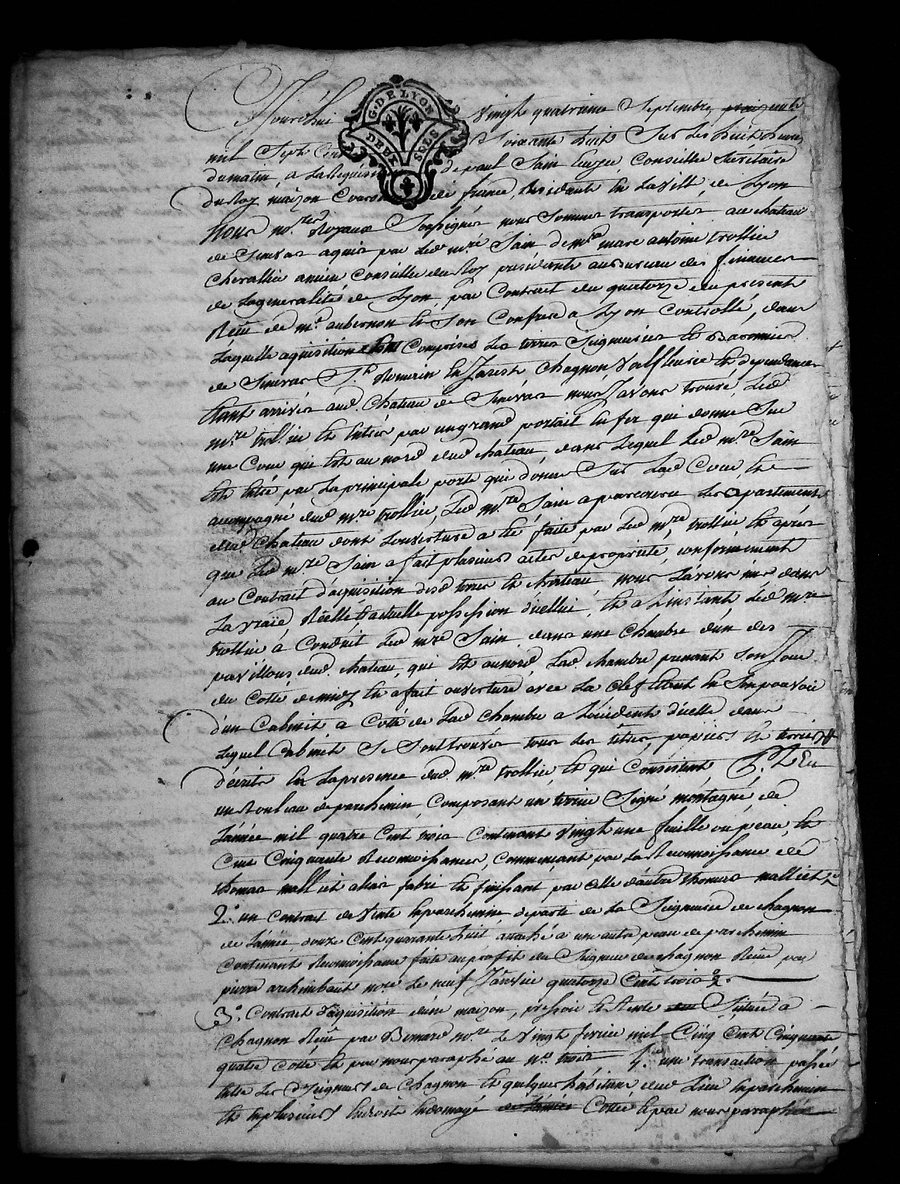 G. DE LYON
DEUX SOLS
Ajourdhui vingt quatrieme Septembre
mil Sept Cent Soixante huit Sur les huit heures
du matin, a la Requi de paul Sain Ecuyer Conseiller Secrétaire
du Roy, maison Couronne de france, residante En la ville de Lyon
Nous no.res Royaux Soussignés nous sommes transportés au château
de Senevas aquis par led m.re Sain de m.re marc antoine trollier
Chevallier ancien Conseiller du Roy président au Bureau des finances
de la généralités de Lyon, par Contrat du quatorze du present
Recu de m.e aubernon Et Son Confrere a Lyon Controllé, dans
Laquelle aquisition sont Comprises les terres Seigneuries Et Baronnies
de Senevas S.t Romain En Jarest Chagnon Valfleurie Et dependances
Etant arrivés aud. Château de Senevas nous y avons trouvé led
m.re trollier Et Entrés par un grand portail En fer qui donne Sur
une Cour qui Est au nord dud château dans Lequel led m.re Sain
Est Entré par la principale porte qui donne Sur lad Cour, Et
acompagné dud m.re trollier, led m.re Sain a parcouru les apartements
dud Château dont l'ouverture a été faite par led m.re trollier Et après
que led m.re Sain a fait plusieurs actes de propriété, conformément
au Contrat d'aquisition desd terres Et château, nous l'avons mis dans
la vraie Réelle Et actuelle possession d'icelle, Et a L'instant led m.re
trollier à Conduit led m.re Sain dans une Chambre d'un des
pavillons dud. château, qui Est au nord lad chambre prenant Son Jour
du Cotté de midy Et a fait ouverture avec la clef Etant En Son pouvoir
d'un Cabinet a Coté de lad Chambre a L'occident d'icelle dans
Lequel Cabinet Se Sont trouvés tous les titres, papiers Et terriers
décrits En la presence dud m.re trollier Et qui Consistent
un Rouleau de parchemin, composant un terrier Signé montagne de
L'année mil quatre Cent trois Contenant vingt une feuille ou peau, Et
Cent Cinquante Reconnoissances, Commençant par la Reconnoissance de
thomas malliet alias fabri Et finissant par celle d'autre thomas malliet
2.o un Contrat de Vente En parchemin departie de la Seigneurie de chagnon
de L'année douze Cent quarante huit attaché a une autre peau de parchemin
Contenant Reconnoissance faite au profit du Seigneur de chagnon Reçue par
pierre archimbaut no.re le neuf Janvier quatorze Cent trois
3.o Contract d'aquisition d'une maison, pressoir Et Rente Située a
Chagnon Reçu par Benard no.re le Vingt fevrier mil Cinq Cent Cinquante
quatre Cotté Et par nous paraphé au n.o trois une transaction passée
Entre les Seigneurs de Chagnon Et quelques habitans dud Lieu En parchemin
Et En plusieurs Endroits Endomagé Cottée Et par nous paraphée